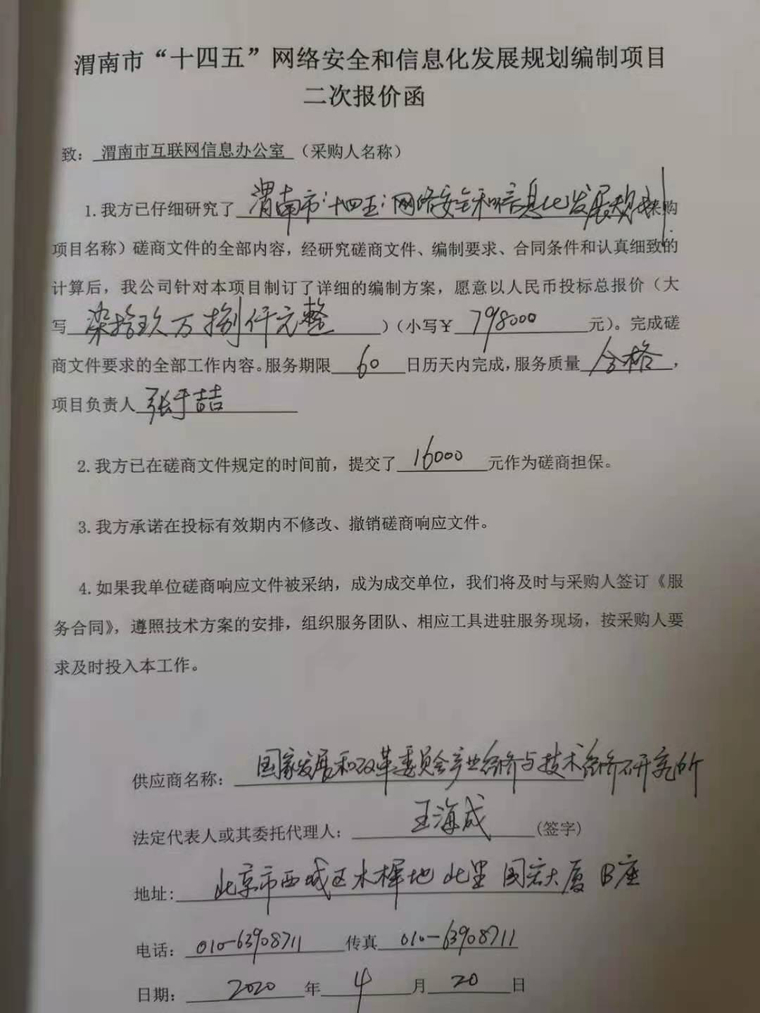 渭南市“十四五”网络安全和信息化发展规划编制项目
二次报价函
致：渭南市互联网信息办公室（采购人名称）
1.我方已仔细研究了渭南市“十四五”网络安全和信息化发展规划采购
项目名称）磋商文件的全部内容，经研究磋商文件、编制要求、合同条件和认真细致的
计算后，我公司针对本项目制订了详细的编制方案，愿意以人民币投标总报价（大
写柒拾玖万捌仟元整）（小写￥798000元）。完成磋
商文件要求的全部工作内容。服务期限60日历天内完成，服务质量合格，
项目负责人张于喆
2.我方已在磋商文件规定的时间前，提交了16000元作为磋商担保。
3.我方承诺在投标有效期内不修改、撤销磋商响应文件。
4.如果我单位磋商响应文件被采纳，成为成交单位，我们将及时与采购人签订《服
务合同》，遵照技术方案的安排，组织服务团队、相应工具进驻服务现场，按采购人要
求及时投入本工作。
供应商名称：国家发展和改革委员会产业经济与技术经济研究所
法定代表人或其委托代理人：王海成（签字）
地址：北京市西城区木樨地北里国宏大厦B座
电话：010-63908711 传真 010-63908711
日期：2020年4月20日